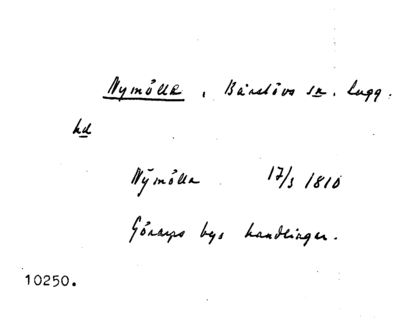 Nymölla, Bårslövs sn. Lugg.
hd
Nÿmölla 17/3 1810
Görarps bys handlingar.
10250.